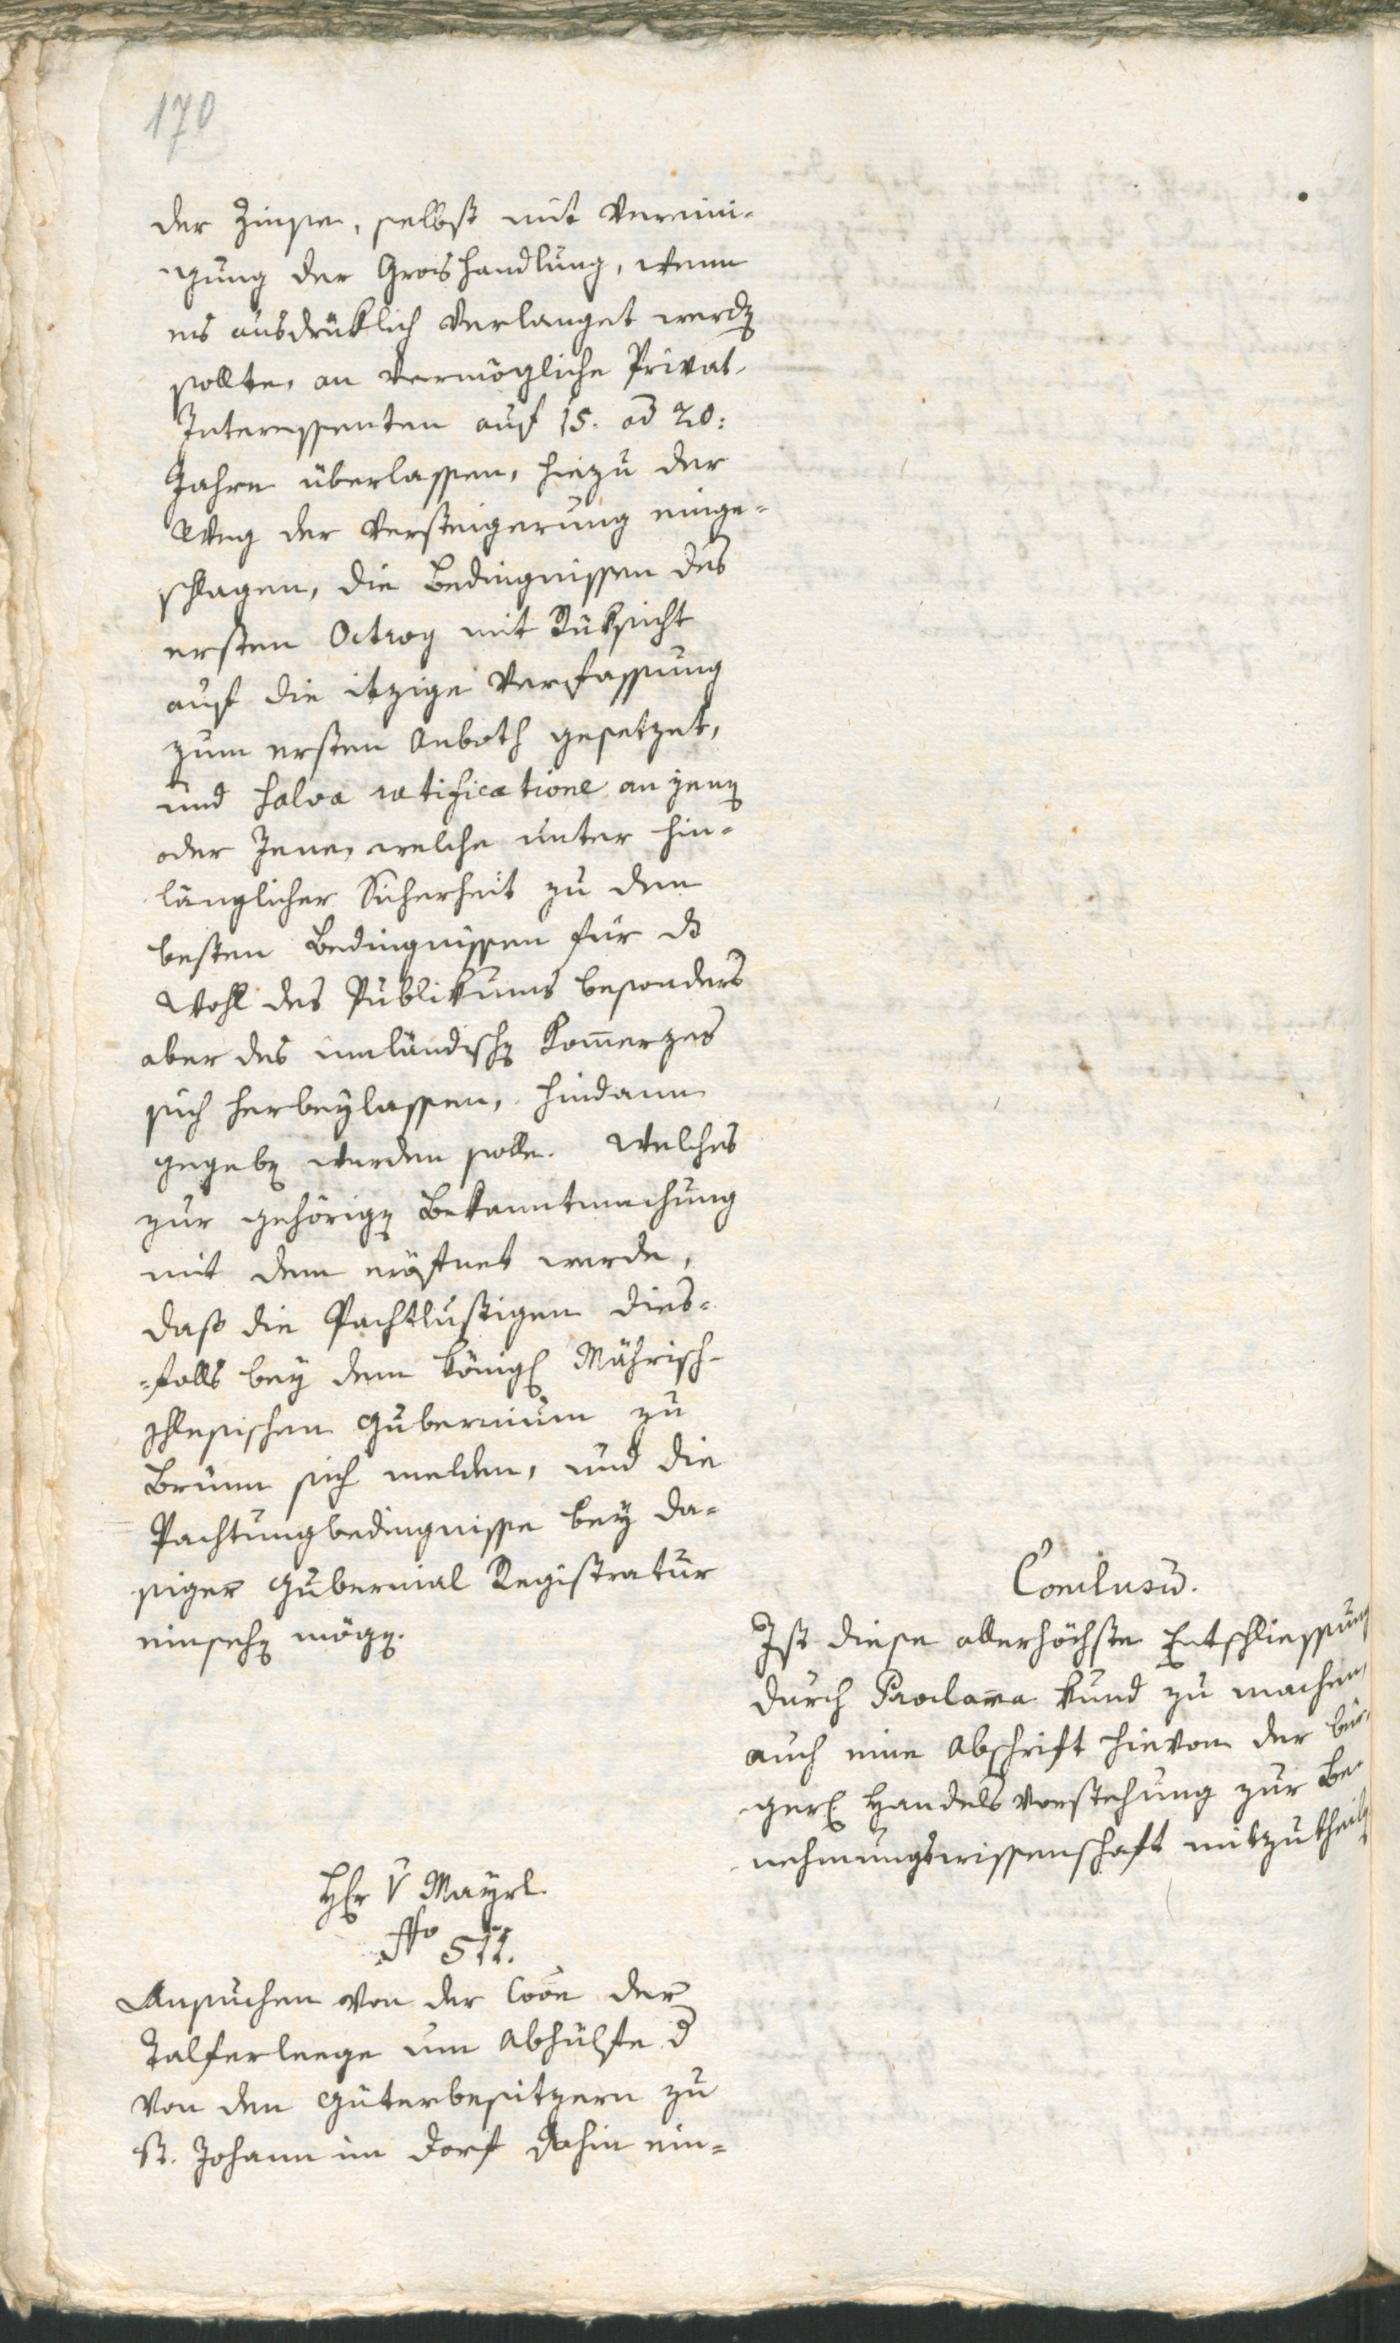 170
der Zinse, selbst mit Vereini-
gung der Groshandlung, wenn
es ausdrüklich verlanget werdn
sollte, an vermögliche Privat-
Interessenten auf 15. od 20:
Jahre überlassen, hiezu der
Weg der Versteigerung einge-
schlagen, die Bedingnissen des
ersten Octroy mit Rüksicht
auf die itzige Verfassung
zum ersten Anboth gesetzet,
und salva ratificatione an jenen
oder Jene, welche unter hin-
länglicher Sicherheit zu den
besten Bedingnissen für das
Wohl des Publikums besonders
aber des innländischn Komerzes
sich herbeylassen, hindann
gegebn werden solle. Welches
zur gehörign Bekanntmachung
mit dem eröfnet werde,
daß die Pachtlustigen dies-
-falls bey dem königl Mährisch-
schlesischen Gubernium zu
Brünn sich melden, und die
Pachtungbedingnisse bey da-
siger Gubernial Registratur
einsehn mögn.
Conclusū.
Ist diese allerhöchste Entschliessung
durch Proclama kund zu machen,
auch eine Abschrift hievon der bür-
gerl Handelsvorstehung zur Be-
nehmungswissenschaft mitzutheiln
Hr V Mayrl.
No 511.
Ansuchen von der Coon der
Talferleege um Abhülfe d
von den Güterbesitzern zu
St. Johann im Dorf dahin ein-